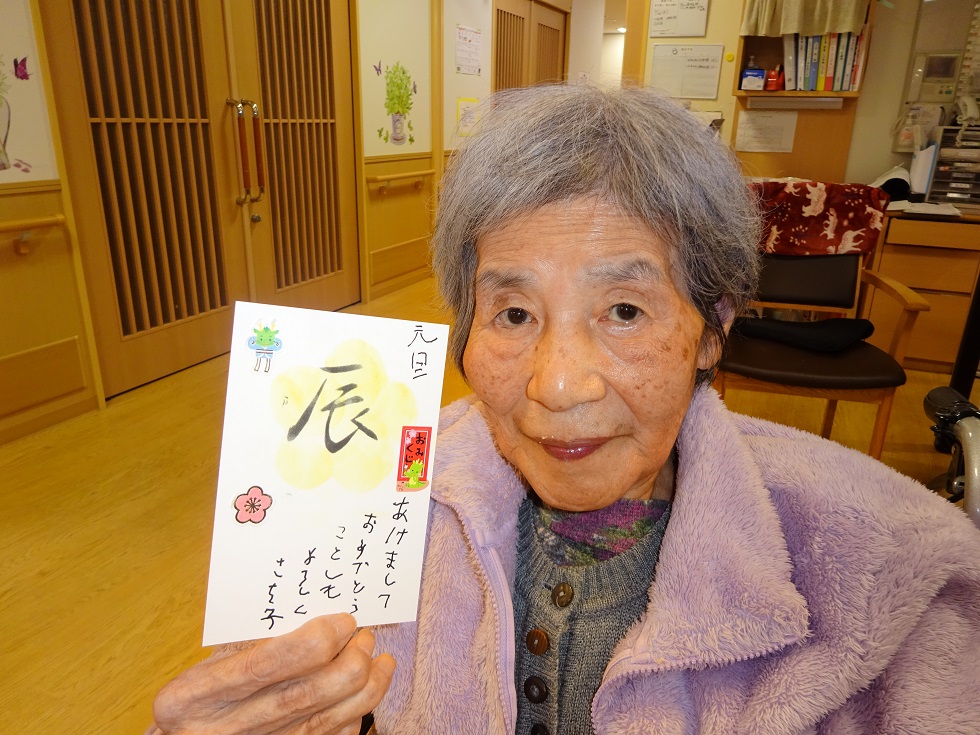 元旦
辰
おみくじ
あけまして
おめでとう
ことしも
よろしく
さち子